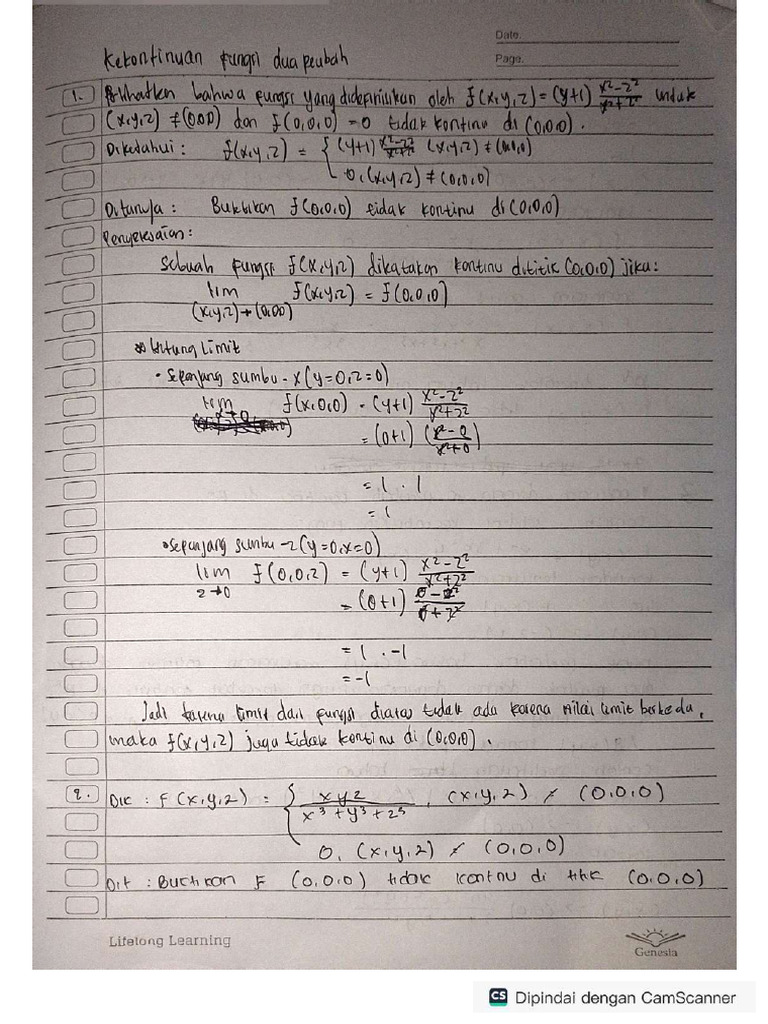 Date.
Page.
Kekontinuan fungsi dua peubah
1. Perlihatkan bahwa fungsi yang didefinisikan oleh f(x,y,z) = (y+1) x²-z²/x²+z² untuk
(x,y,z) ≠ (0,0,0) dan f(0,0,0) = 0 tidak kontinu di (0,0,0).
Diketahui : f(x,y,z) = { (y+1) x²-z²/x²+z² (x,y,z) ≠ (0,0,0)
0, (x,y,z) ≠ (0,0,0)
Ditanya : Buktikan f(0,0,0) tidak kontinu di (0,0,0)
Penyelesaian :
Sebuah fungsi f(x,y,z) dikatakan kontinu dititik (0,0,0) jika :
lim f(x,y,z) = f(0,0,0)
(x,y,z)→(0,0,0)
Hitung Limit
• Sepanjang sumbu-x (y=0, z=0)
lim f(x,0,0) = (y+1) x²-z²/x²+z²
x→0
= (0+1) (x²-0/x²+0)
= 1 . 1
= 1
• Sepanjang sumbu-z (y=0, x=0)
lim f(0,0,z) = (y+1) x²-z²/x²+z²
z→0
= (0+1) 0-z²/0+z²
= 1 . -1
= -1
Jadi karena limit dari fungsi diatas tidak ada karena nilai limit berbeda,
maka f(x,y,z) juga tidak kontinu di (0,0,0).
2. Dik : F(x,y,z) = { xyz/x³+y³+z³, (x,y,z) ≠ (0,0,0)
0, (x,y,z) ≠ (0,0,0)
Dit : Buktikan F (0,0,0) tidak kontinu di titik (0,0,0)
Lifelong Learning
Genesia
CS Dipindai dengan CamScanner